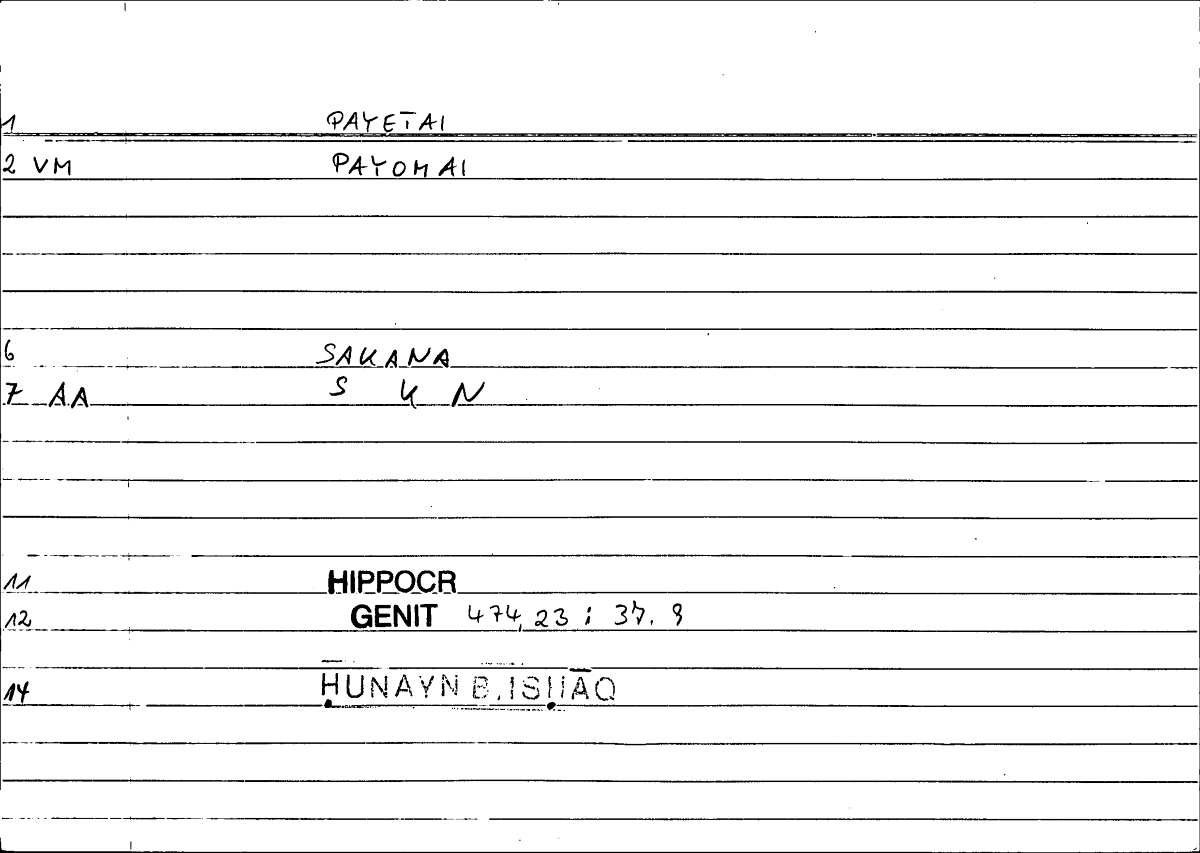 1 PAYETAI
2 VM PAYOMAI
6 SAKANA
7 AA S K N
11 HIPPOCR
12 GENIT 474,23 ; 37.9
14 ḤUNAYN B. ISḤĀQ